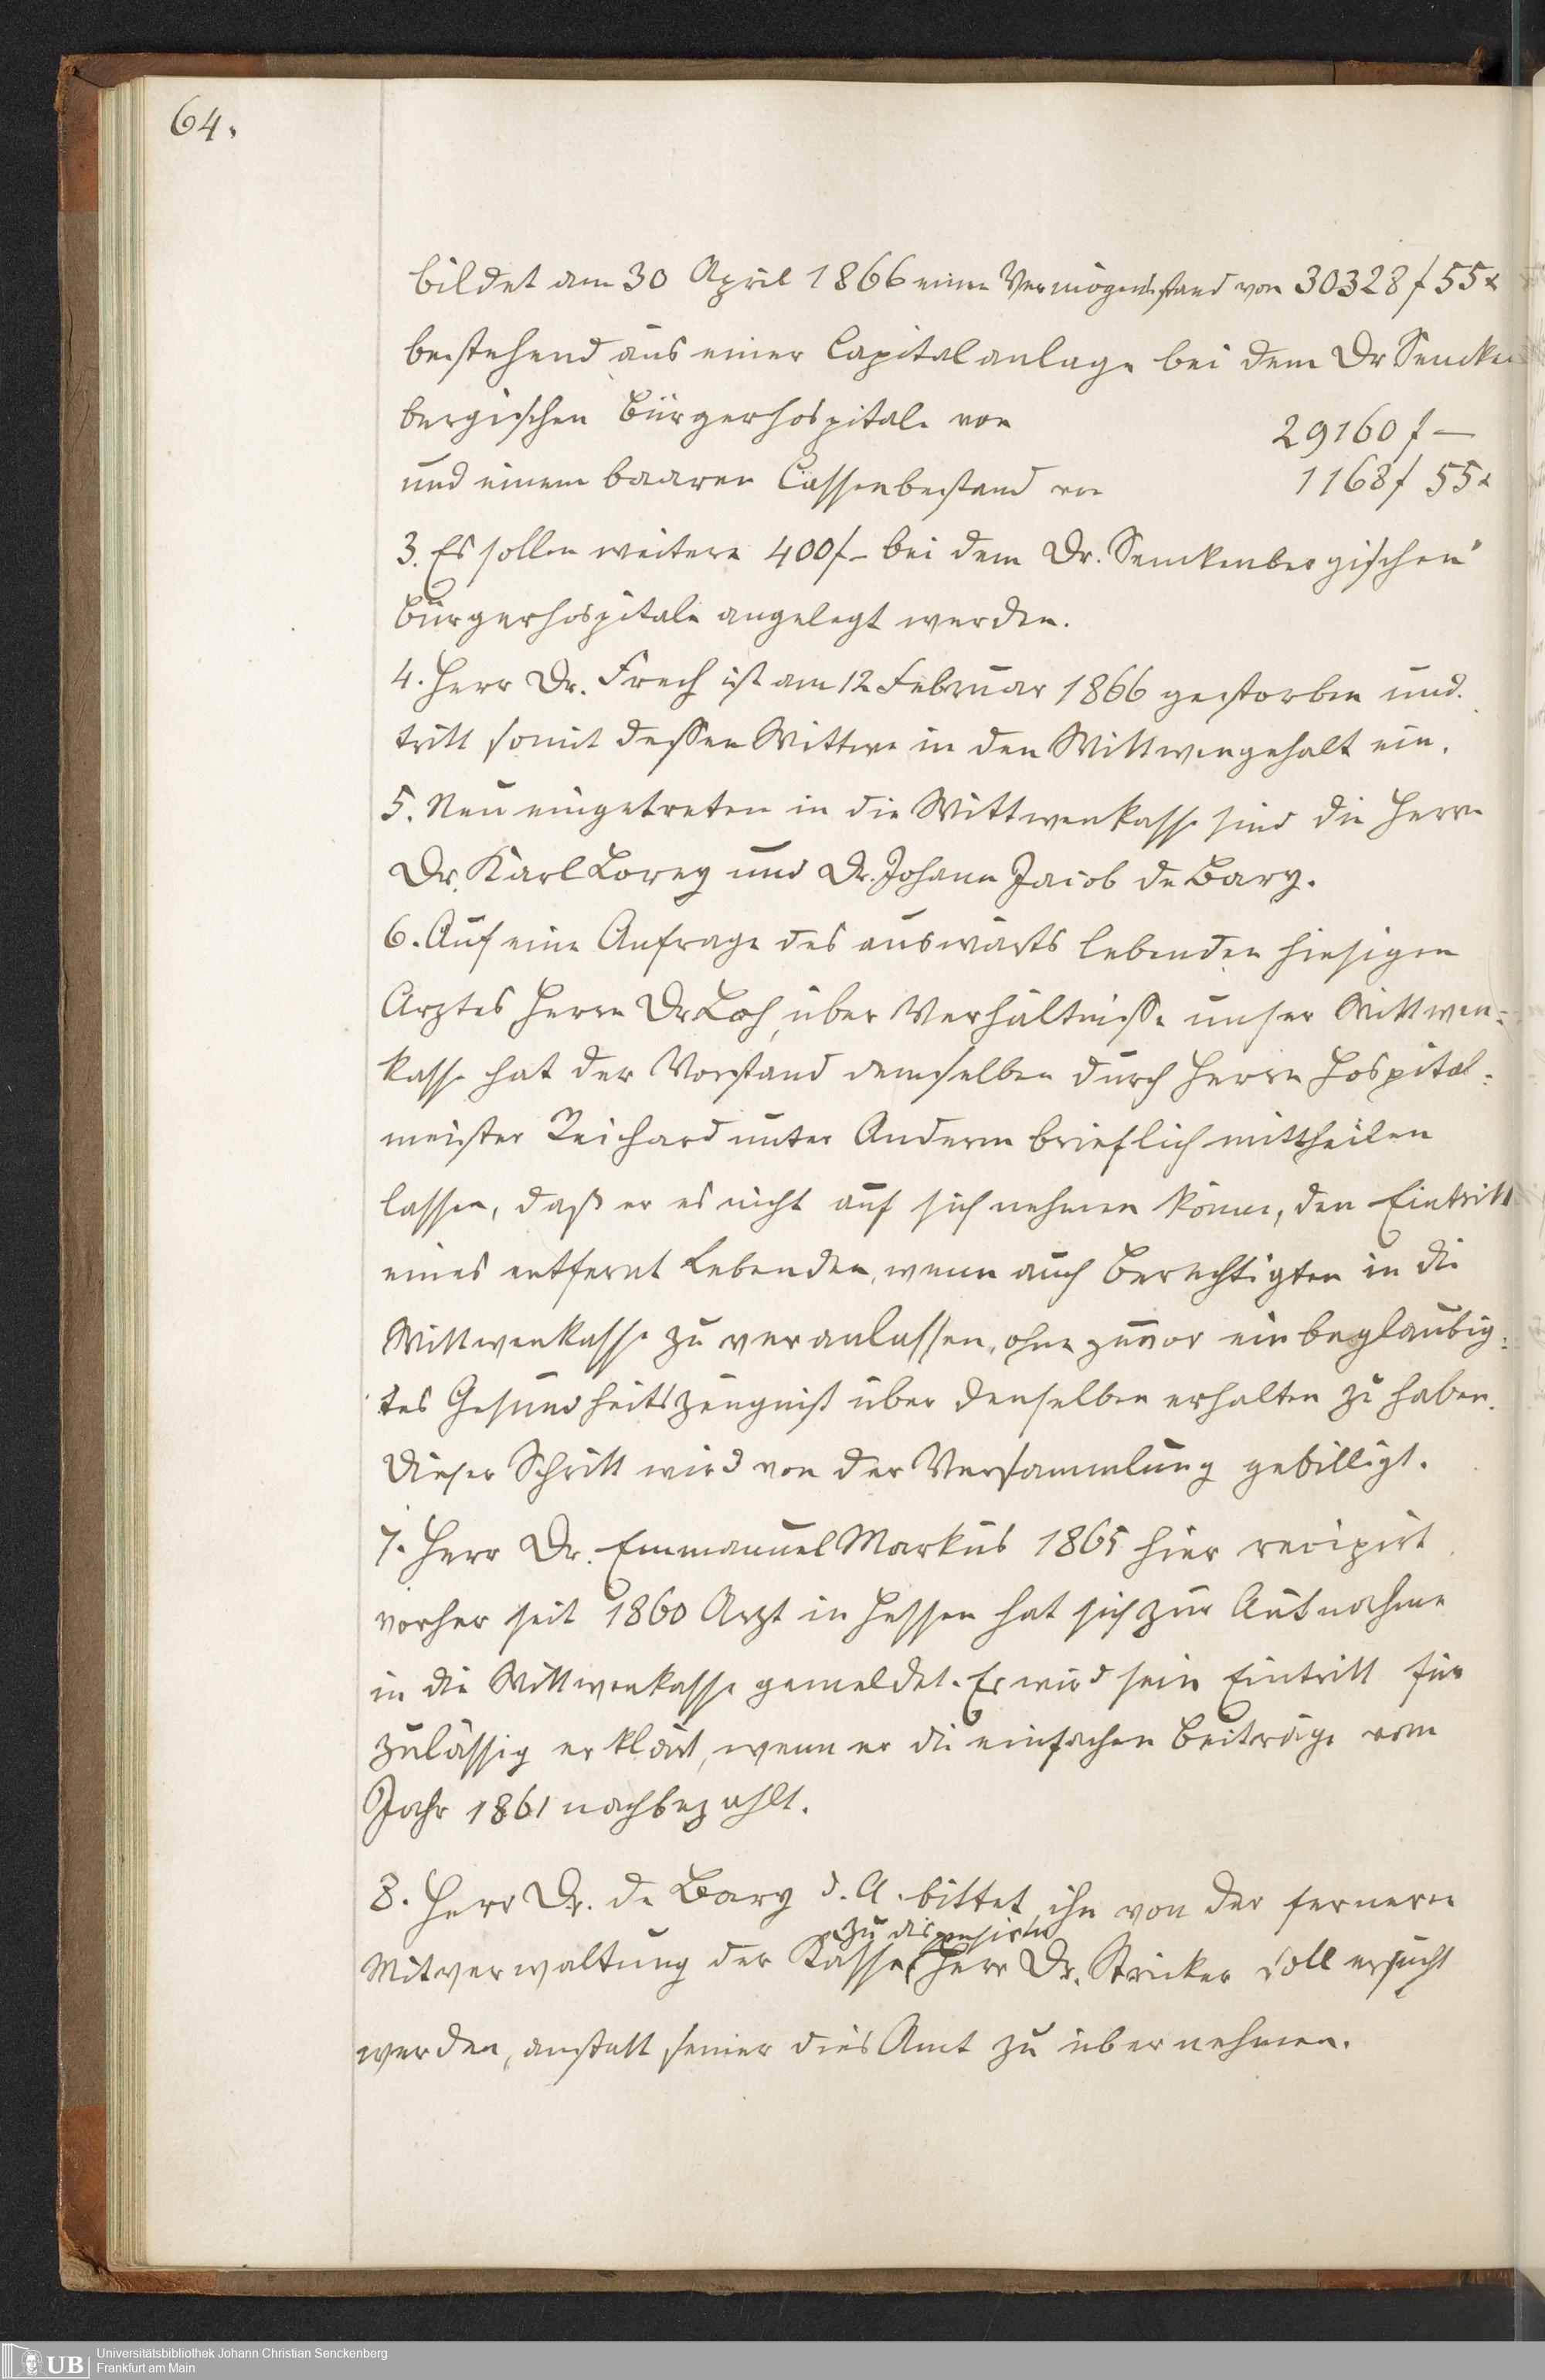 64.
bildet am 30 April 1866 einen Vermögensstand von 30328 f 55 x
bestehend aus einer Capitalanlage bei dem Dr Sencken
bergischen Bürgerhospitale von 29160 f —
und einem baaren Cassenbestand von 1168 f 55 x
3. Es sollen weitere 400 f – bei dem Dr. Senckenbergischen
Bürgerhospitale angelegt werden.
4. Herr Dr. Frech ist am 12 Februar 1866 gestorben und
tritt somit dessen Wittwe in den Wittwengehalt ein.
5. Neu eingetreten in die Wittwenkasse sind die Herrn
Dr. Karl Lorey und Dr. Johann Jacob de Bary.
6. Auf eine Anfrage des auswärts lebenden hiesigen
Arztes Herrn Dr Loh, über Verhältnisse unser Wittwen-
kasse hat der Vorstand demselben durch Herrn Hospital-
meister Reichard unter Anderm brieflich mittheilen
lassen, daß er es nicht auf sich nehmen könne, den Eintritt
eines entfernt Lebenden, wenn auch Berechtigten in die
Wittwenkasse zu veranlassen, ohne zuvor ein beglaubig-
tes Gesundheitszeugniß über denselben erhalten zu haben.
Dieser Schritt wird von der Versammlung gebilligt.
7. Herr Dr. Emmanuel Markus 1865 hier recipirt
vorher seit 1860 Arzt in Hessen hat sich zur Aufnahme
in die Wittwenkasse gemeldet. Es wird sein Eintritt für
zulässig erklärt, wenn er die einfachen Beiträge vom
Jahr 1861 nachbezahlt.
8. Herr Dr. de Bary d. A. bittet ihn von der ferneren
zu dispensiren
Mitverwaltung der Kasse. Herr Dr. Stricker soll ersucht
werden, anstatt seiner dies Amt zu übernehmen.
UB
Universitätsbibliothek Johann Christian Senckenberg
Frankfurt am Main